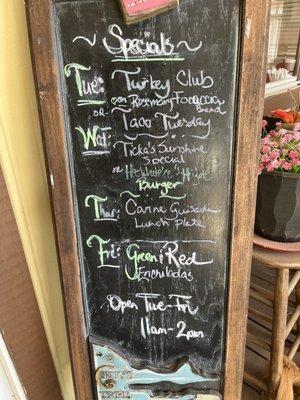 Specials
Tue: Turkey Club
on Rosemary Focaccia
Bread
or Taco Tuesday
Wed: Ticka's Sunshine
Special
or
Burger
Thur: Carne Guisada
Lunch Plate
Fri: Green or Red
Enchiladas
Open Tue-Fri
11am-2pm